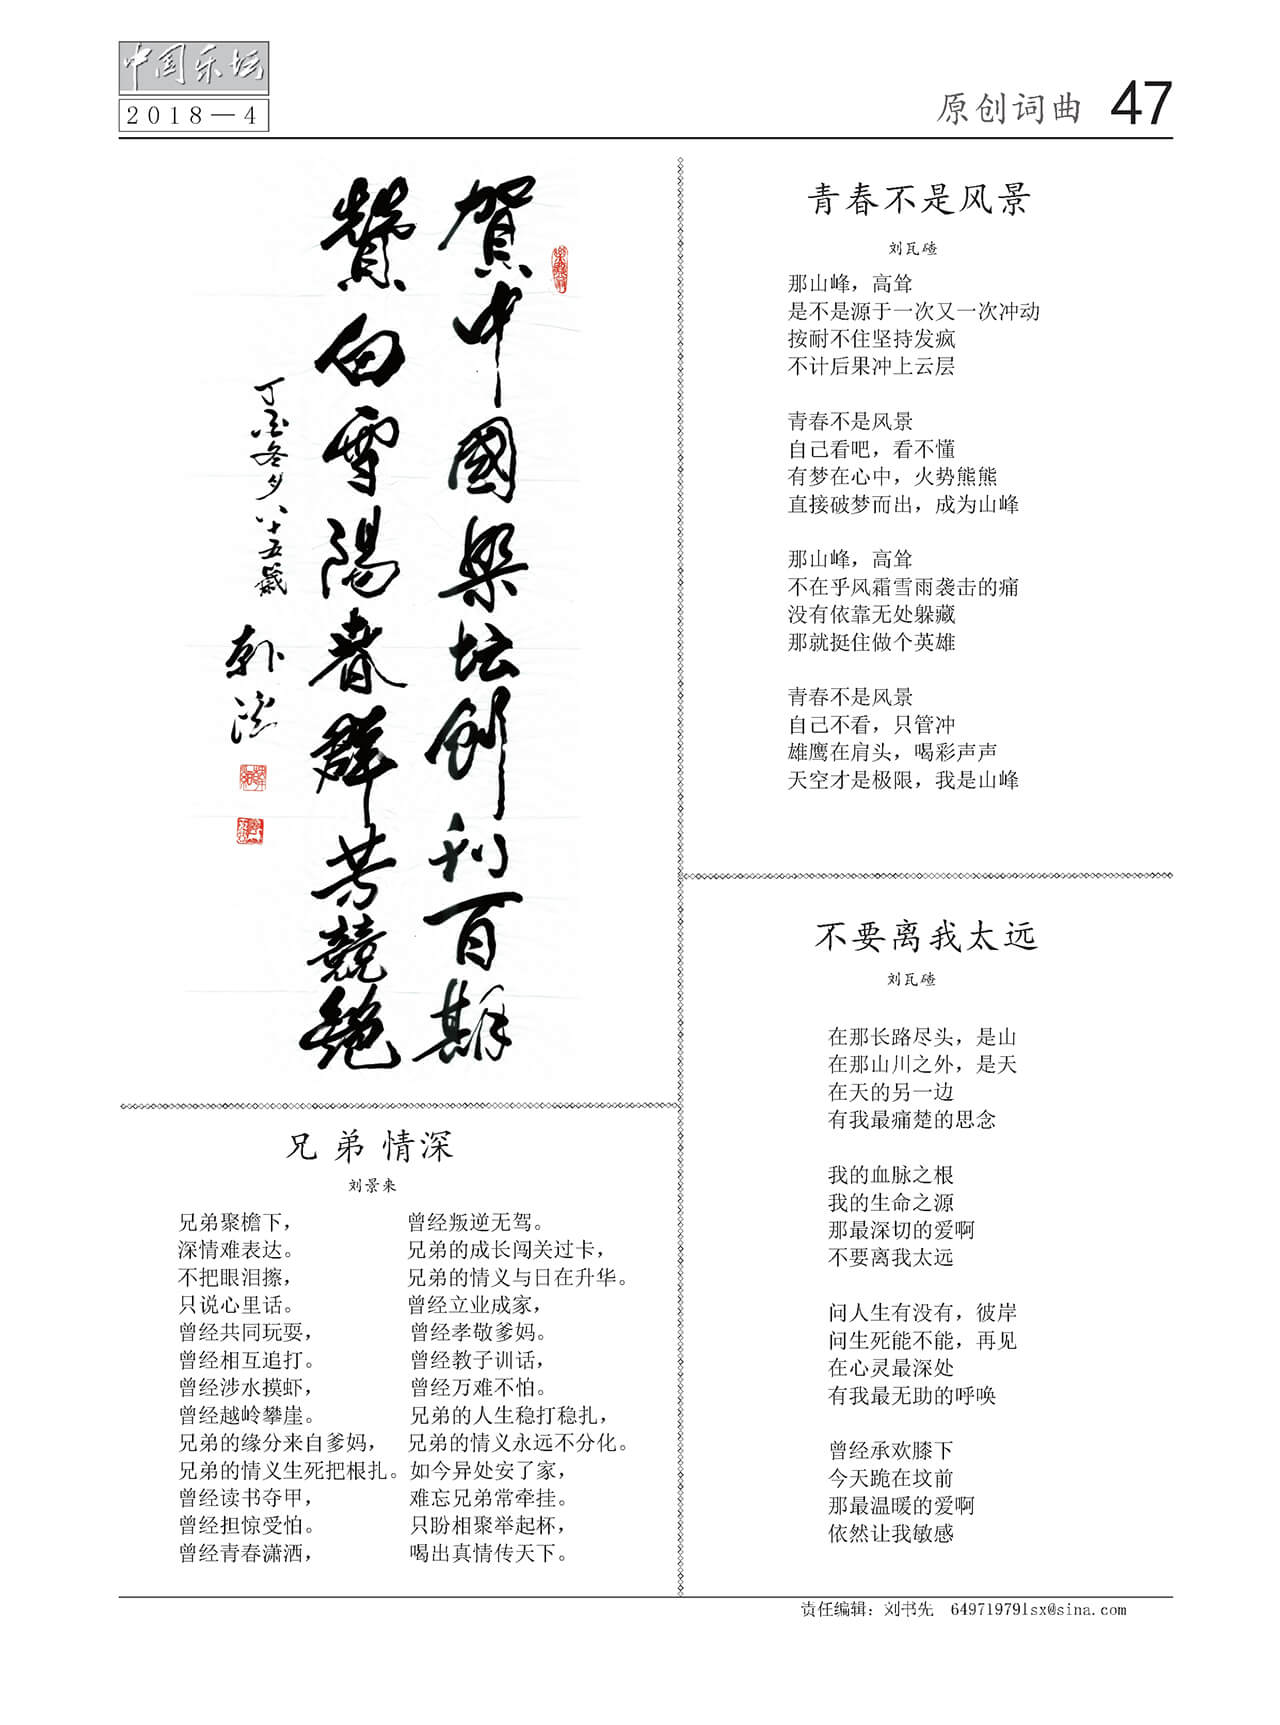 中国乐坛
2018—4
原创词曲 47
賀中國樂坛創刊百期
贊白雪陽春群芳競艳
丁酉冬夕八十五歲
青春不是风景
刘瓦碴
那山峰，高耸
是不是源于一次又一次冲动
按耐不住坚持发疯
不计后果冲上云层
青春不是风景
自己看吧，看不懂
有梦在心中，火势熊熊
直接破梦而出，成为山峰
那山峰，高耸
不在乎风霜雪雨袭击的痛
没有依靠无处躲藏
那就挺住做个英雄
青春不是风景
自己不看，只管冲
雄鹰在肩头，喝彩声声
天空才是极限，我是山峰
不要离我太远
刘瓦碴
在那长路尽头，是山
在那山川之外，是天
在天的另一边
有我最痛楚的思念
我的血脉之根
我的生命之源
那最深切的爱啊
不要离我太远
问人生有没有，彼岸
问生死能不能，再见
在心灵最深处
有我最无助的呼唤
曾经承欢膝下
今天跪在坟前
那最温暖的爱啊
依然让我敏感
兄弟情深
刘景来
兄弟聚檐下，
深情难表达。
不把眼泪擦，
只说心里话。
曾经共同玩耍，
曾经相互追打。
曾经涉水摸虾，
曾经越岭攀崖。
兄弟的缘分来自爹妈，
兄弟的情义生死把根扎。
曾经读书夺甲，
曾经担惊受怕。
曾经青春潇洒，
曾经叛逆无驾。
兄弟的成长闯关过卡，
兄弟的情义与日在升华。
曾经立业成家，
曾经孝敬爹妈。
曾经教子训话，
曾经万难不怕。
兄弟的人生稳打稳扎，
兄弟的情义永远不分化。
如今异处安了家，
难忘兄弟常牵挂。
只盼相聚举起杯，
喝出真情传天下。
责任编辑：刘书先 649719791sx@sina.com